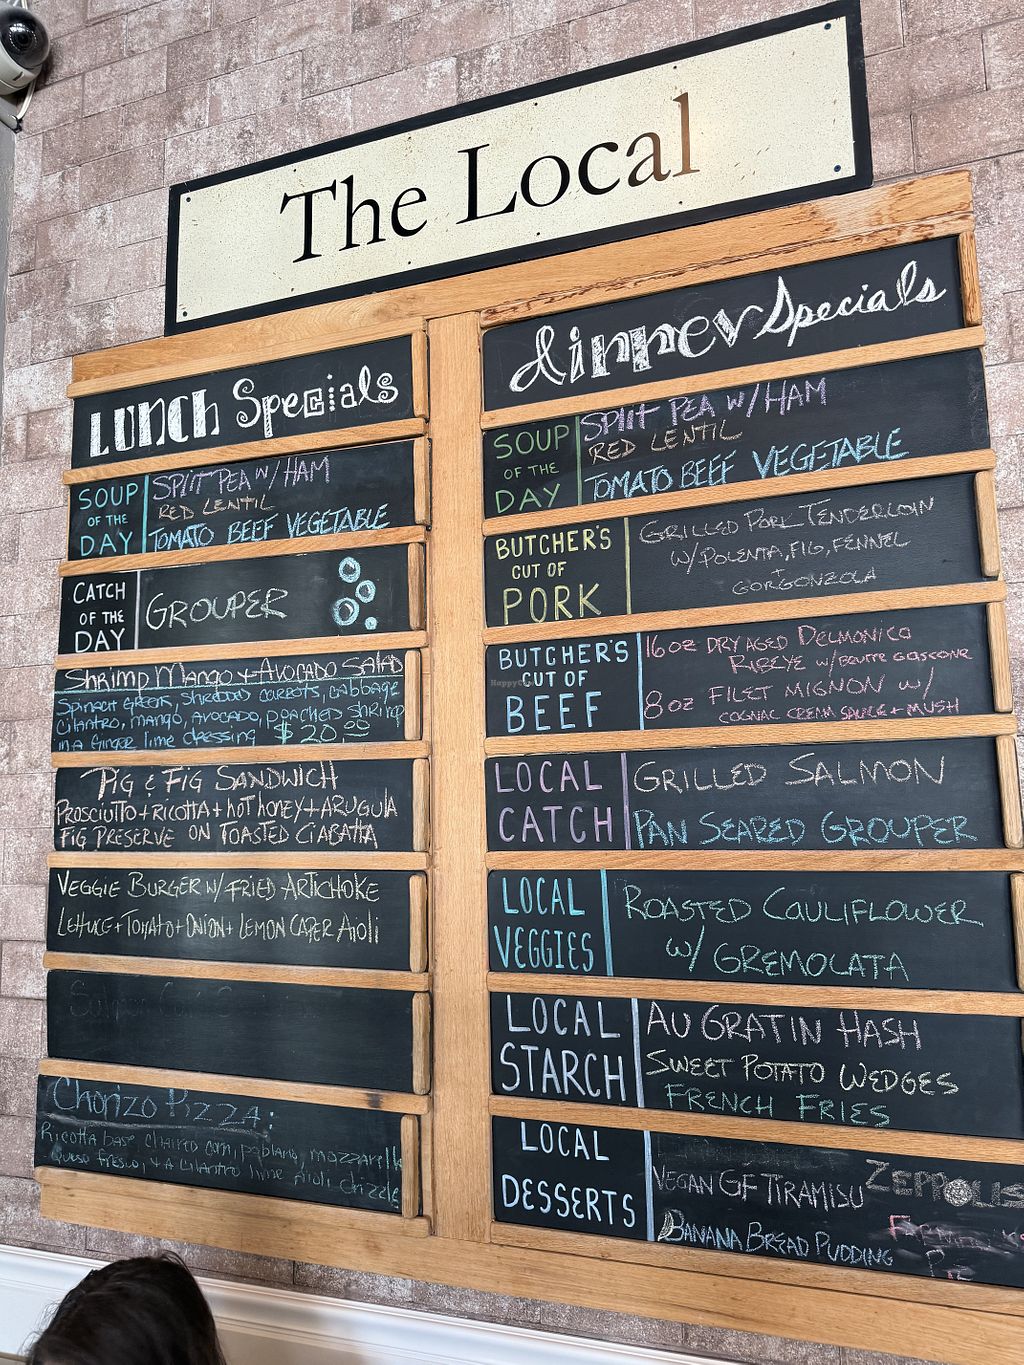 The Local
LUNCH Specials
SOUP OF THE DAY
SPLIT PEA W/ HAM
RED LENTIL
TOMATO BEEF VEGETABLE
CATCH OF THE DAY
GROUPER
Shrimp Mango + Avocado Salad
Spinach greens, shredded carrots, cabbage
cilantro, mango, avocado, poached shrimp
in a ginger lime dressing $20.00
PIG & FIG SANDWICH
PROSCIUTTO + RICOTTA + HOT HONEY + ARUGULA
FIG PRESERVE ON TOASTED CIABATTA
VEGGIE BURGER W/ FRIED ARTICHOKE
LETTUCE + TOMATO + ONION + LEMON CAPER AIOLI
Chorizo Pizza:
Ricotta base, charred corn, poblano, mozzarella
Queso fresco, + a cilantro lime aioli drizzle
dinner Specials
SOUP OF THE DAY
SPLIT PEA W/ HAM
RED LENTIL
TOMATO BEEF VEGETABLE
BUTCHER'S CUT OF PORK
GRILLED PORK TENDERLOIN
W/ POLENTA, FIG, FENNEL
+
GORGONZOLA
BUTCHER'S CUT OF BEEF
16oz DRY AGED DELMONICO
RIBEYE W/ BEURRE GASCONE
8oz FILET MIGNON W/
COGNAC CREAM SAUCE + MUSH
LOCAL CATCH
GRILLED SALMON
PAN SEARED GROUPER
LOCAL VEGGIES
ROASTED CAULIFLOWER
W/ GREMOLATA
LOCAL STARCH
AU GRATIN HASH
SWEET POTATO WEDGES
FRENCH FRIES
LOCAL DESSERTS
VEGAN GF TIRAMISU ZEPPOLIS
BANANA BREAD PUDDING